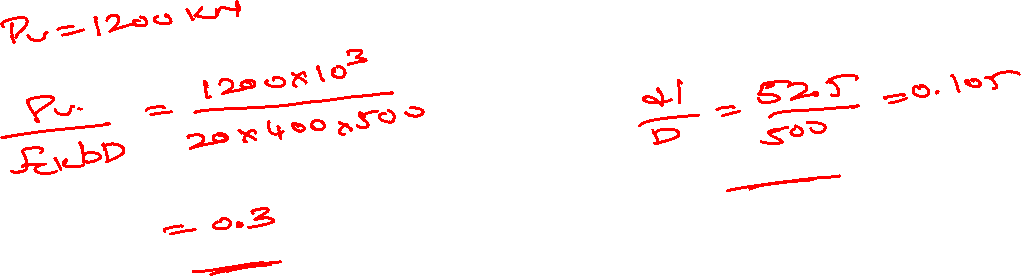 Pu = 1200 KN
Pu / fckbD = 1200×10³ / 20×400×500
= 0.3
d' / D = 52.5 / 500 = 0.105